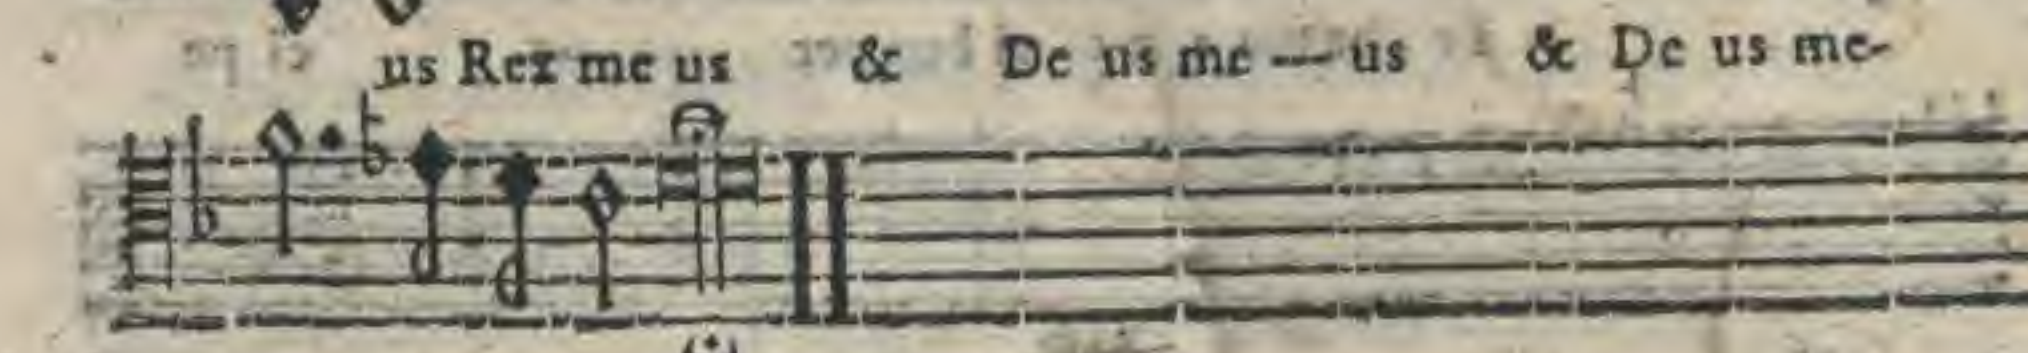 us Rex me us & De us me — us & De us me-